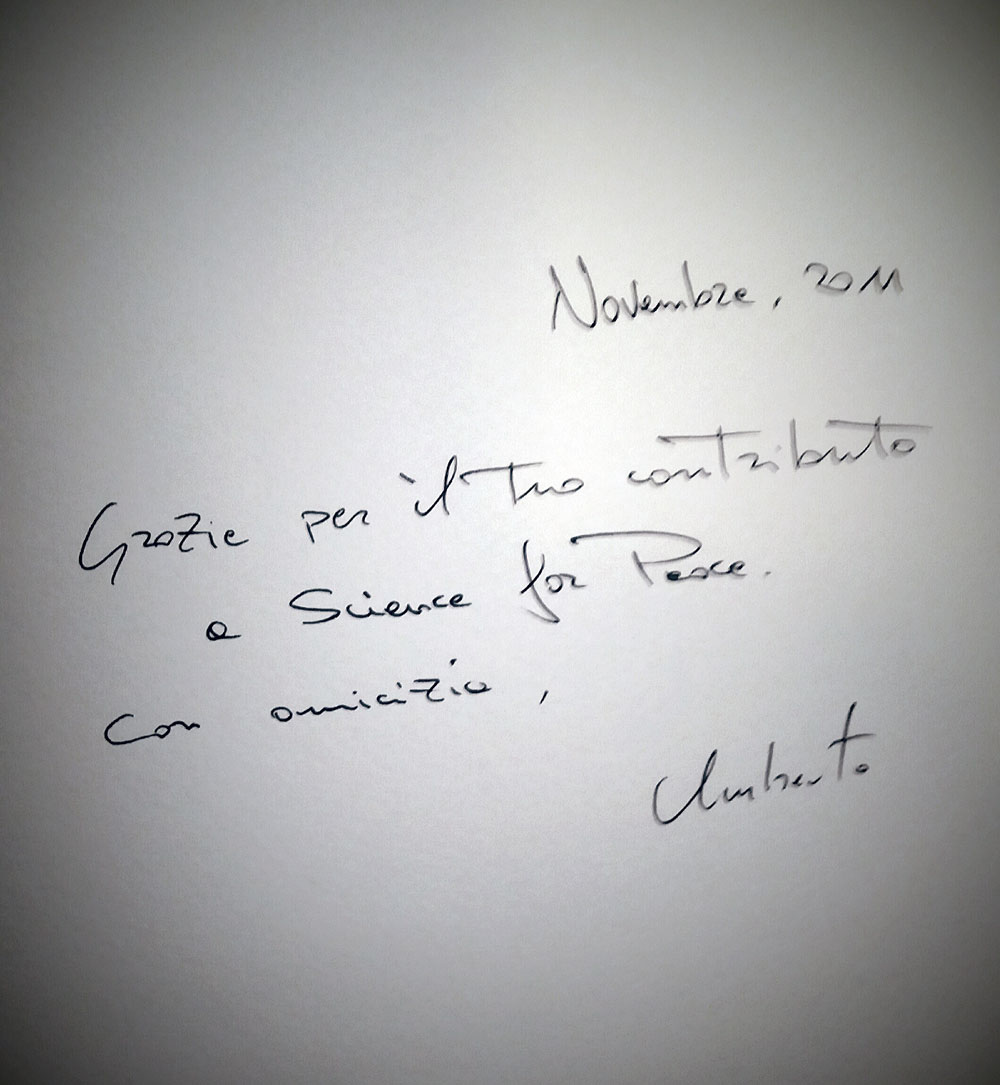 Novembre, 2011
Grazie per il tuo contributo
a Science for Peace.
Con amicizia,
Umberto